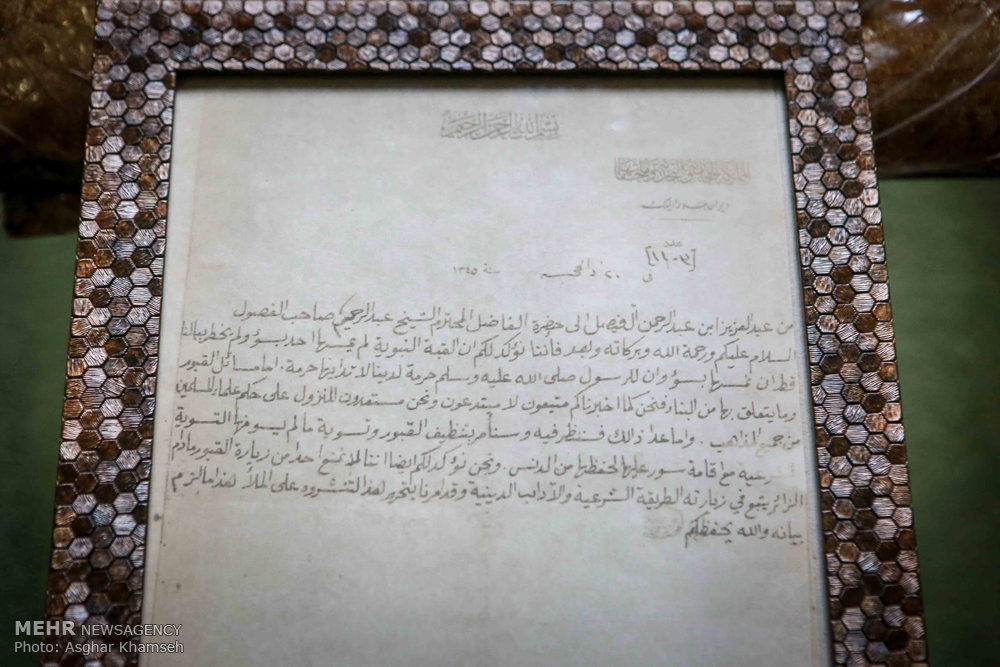 بسم الله الرحمن الرحيم
ديوان جلالة الملك
عدد
[١١٠٣]
في ٢٠ ذالحجه سنة ١٣٤٥
من عبد العزيز ابن عبد الرحمن آل فيصل الى حضرة الفاضل المحترم الشيخ عبد الرحيم صاحب الفصول
السلام عليكم ورحمة الله وبركاته وبعد فاننا نؤكد لكم ان القبة النبوية لم يمسها احد بسؤ ولم يخطر ببالنا
قط ان نمسها بسؤ وان للرسول صلى الله عليه وسلم حرمة لدينا لا تدانيها حرمة. اما مسائل القبور
وما يتعلق بها من البناء فنحن كما اخبرناكم متبعون لا مبتدعون ونحن مستعدون للنزول على حكم علماء المسلمين
من جميع المذاهب. واما عدا ذالك فسننظر فيه وسنأمر بتنظيف القبور وتسوية ما لم يسو منها التسوية
الشرعيه مع اقامة سور عليها لحفظها من الدنس. ونحن نؤكد لكم ايضا اننا لا نمنع احد من زيارة القبور مادام
الزائر يتبع في زيارته الطريقة الشرعيه والآداب الدينية وقد امرنا بتحرير لهذا لتنشروه على الملأ لهذا ما لزم
بيانه والله يحفظكم
MEHR NEWSAGENCY
Photo: Asghar Khamseh